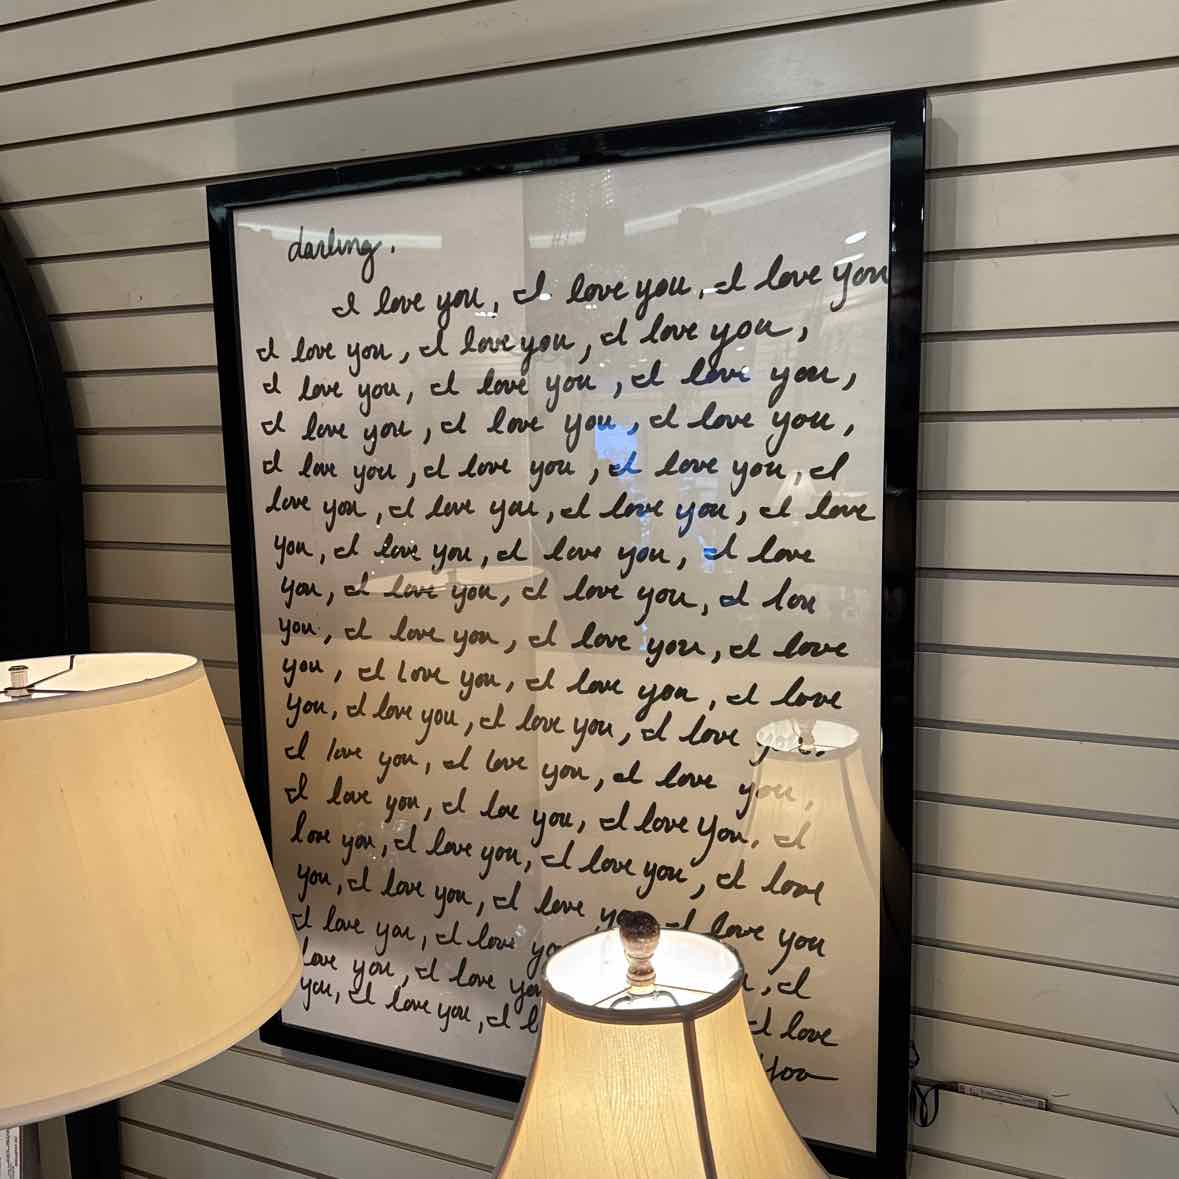 darling.
I love you, I love you, I love you
I love you, I love you, I love you,
I love you, I love you, I love you,
I love you, I love you, I love you,
I love you, I love you, I love you, I
love you, I love you, I love you, I love
you, I love you, I love you, I love
you, I love you, I love you, I love
you, I love you, I love you, I love
you, I love you, I love you, I love
you, I love you, I love you, I love you,
I love you, I love you, I love you,
I love you, I love you, I love you, I
love you, I love you, I love you, I love
you, I love you, I love you, I love you
I love you, I love you, I
love you, I love you, I love
you, I love you, I you